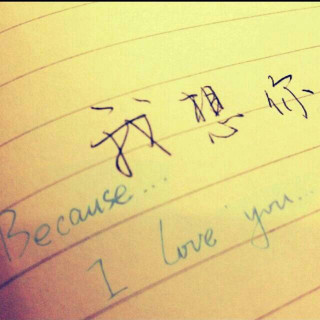 我想你
Because...
I love you...